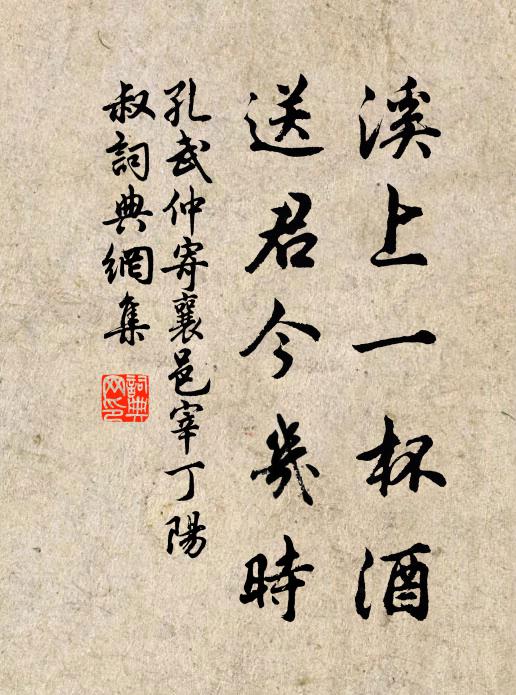 溪上一杯酒
送君今幾時
孔武仲寄襄邑宰丁陽
叔詞典網集
詞典
网印